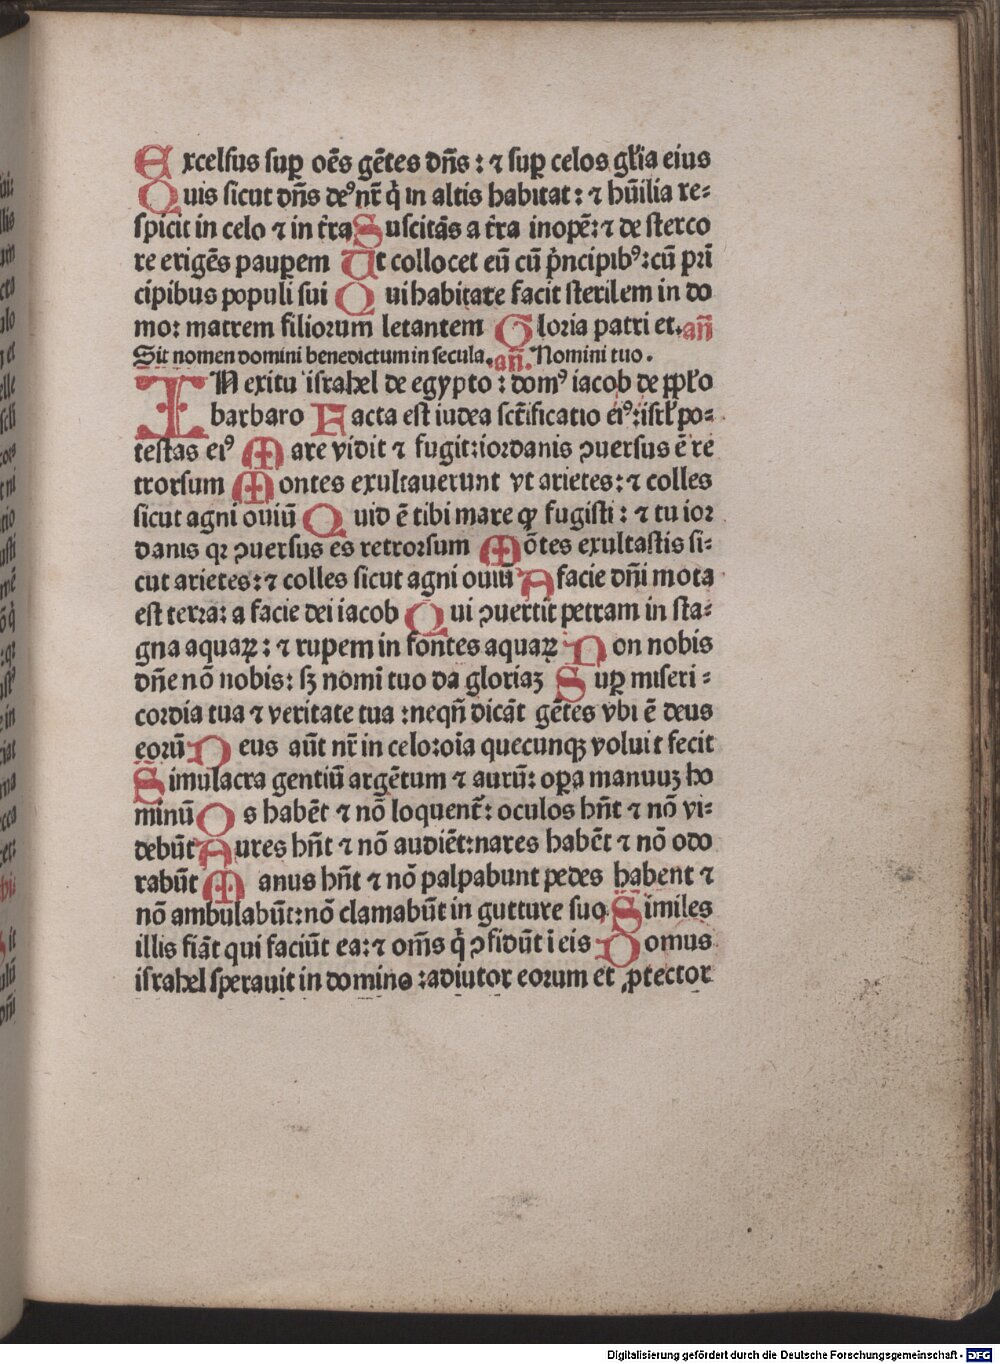 Excelsus suꝑ oēs gētes dn̄s: ⁊ suꝑ celos gl̄ia eius
Quis sicut dn̄s deꝰ nr̄ q̇ in altis habitat: ⁊ hūilia re-
spicit in celo ⁊ in t̄ra Suscitās a t̄ra inopē: ⁊ de sterco
re erigēs pauꝑem Ut collocet eū cū ṗncipibꝰ: cū pri
cipibus populi sui Qui habitare facit sterilem in do
mo: matrem filiorum letantem Gloria patri et. an̄
Sit nomen domini benedictum in secula. an̄. Nomini tuo.
IN exitu israhel de egypto: domꝰ iacob de ppl̄o
barbaro Facta est iudea sctīficatio eiꝰ: isrl̄ po-
testas eiꝰ Mare vidit ⁊ fugit: iordanis ꝯuersus ē re
trorsum Montes exultauerunt vt arietes: ⁊ colles
sicut agni ouiū Quid ē tibi mare qꝛ fugisti: ⁊ tu ior
danis qꝛ ꝯuersus es retrorsum Mōtes exultastis si-
cut arietes: ⁊ colles sicut agni ouiū A facie dn̄i mota
est terra: a facie dei iacob Qui ꝯuertit petram in sta-
gna aquaꝝ: ⁊ rupem in fontes aquaꝝ Non nobis
dn̄e nō nobis: sꝫ nomī tuo da gloriaꝫ Suꝑ miseri-
cordia tua ⁊ veritate tua: neqn̄ dicāt gētes vbi ē deus
eorū Deus aūt nr̄ in celo: oīa quecunqꝫ voluit fecit
Simulacra gentiū argētum ⁊ aurū: oꝑa manuuꝫ ho
minū Os habēt ⁊ nō loquent̄: oculos hn̄t ⁊ nō vi-
debūt Aures hn̄t ⁊ nō audiēt: nares habēt ⁊ nō odo
rabūt Manus hn̄t ⁊ nō palpabunt pedes habent ⁊
nō ambulabūt: nō clamabūt in gutture suo Similes
illis fiāt qui faciūt ea: ⁊ om̄s q̇ ꝯfidūt ī eis Domus
israhel sperauit in domino: adiutor eorum et ꝓtector
Digitalisierung gefördert durch die Deutsche Forschungsgemeinschaft - DFG